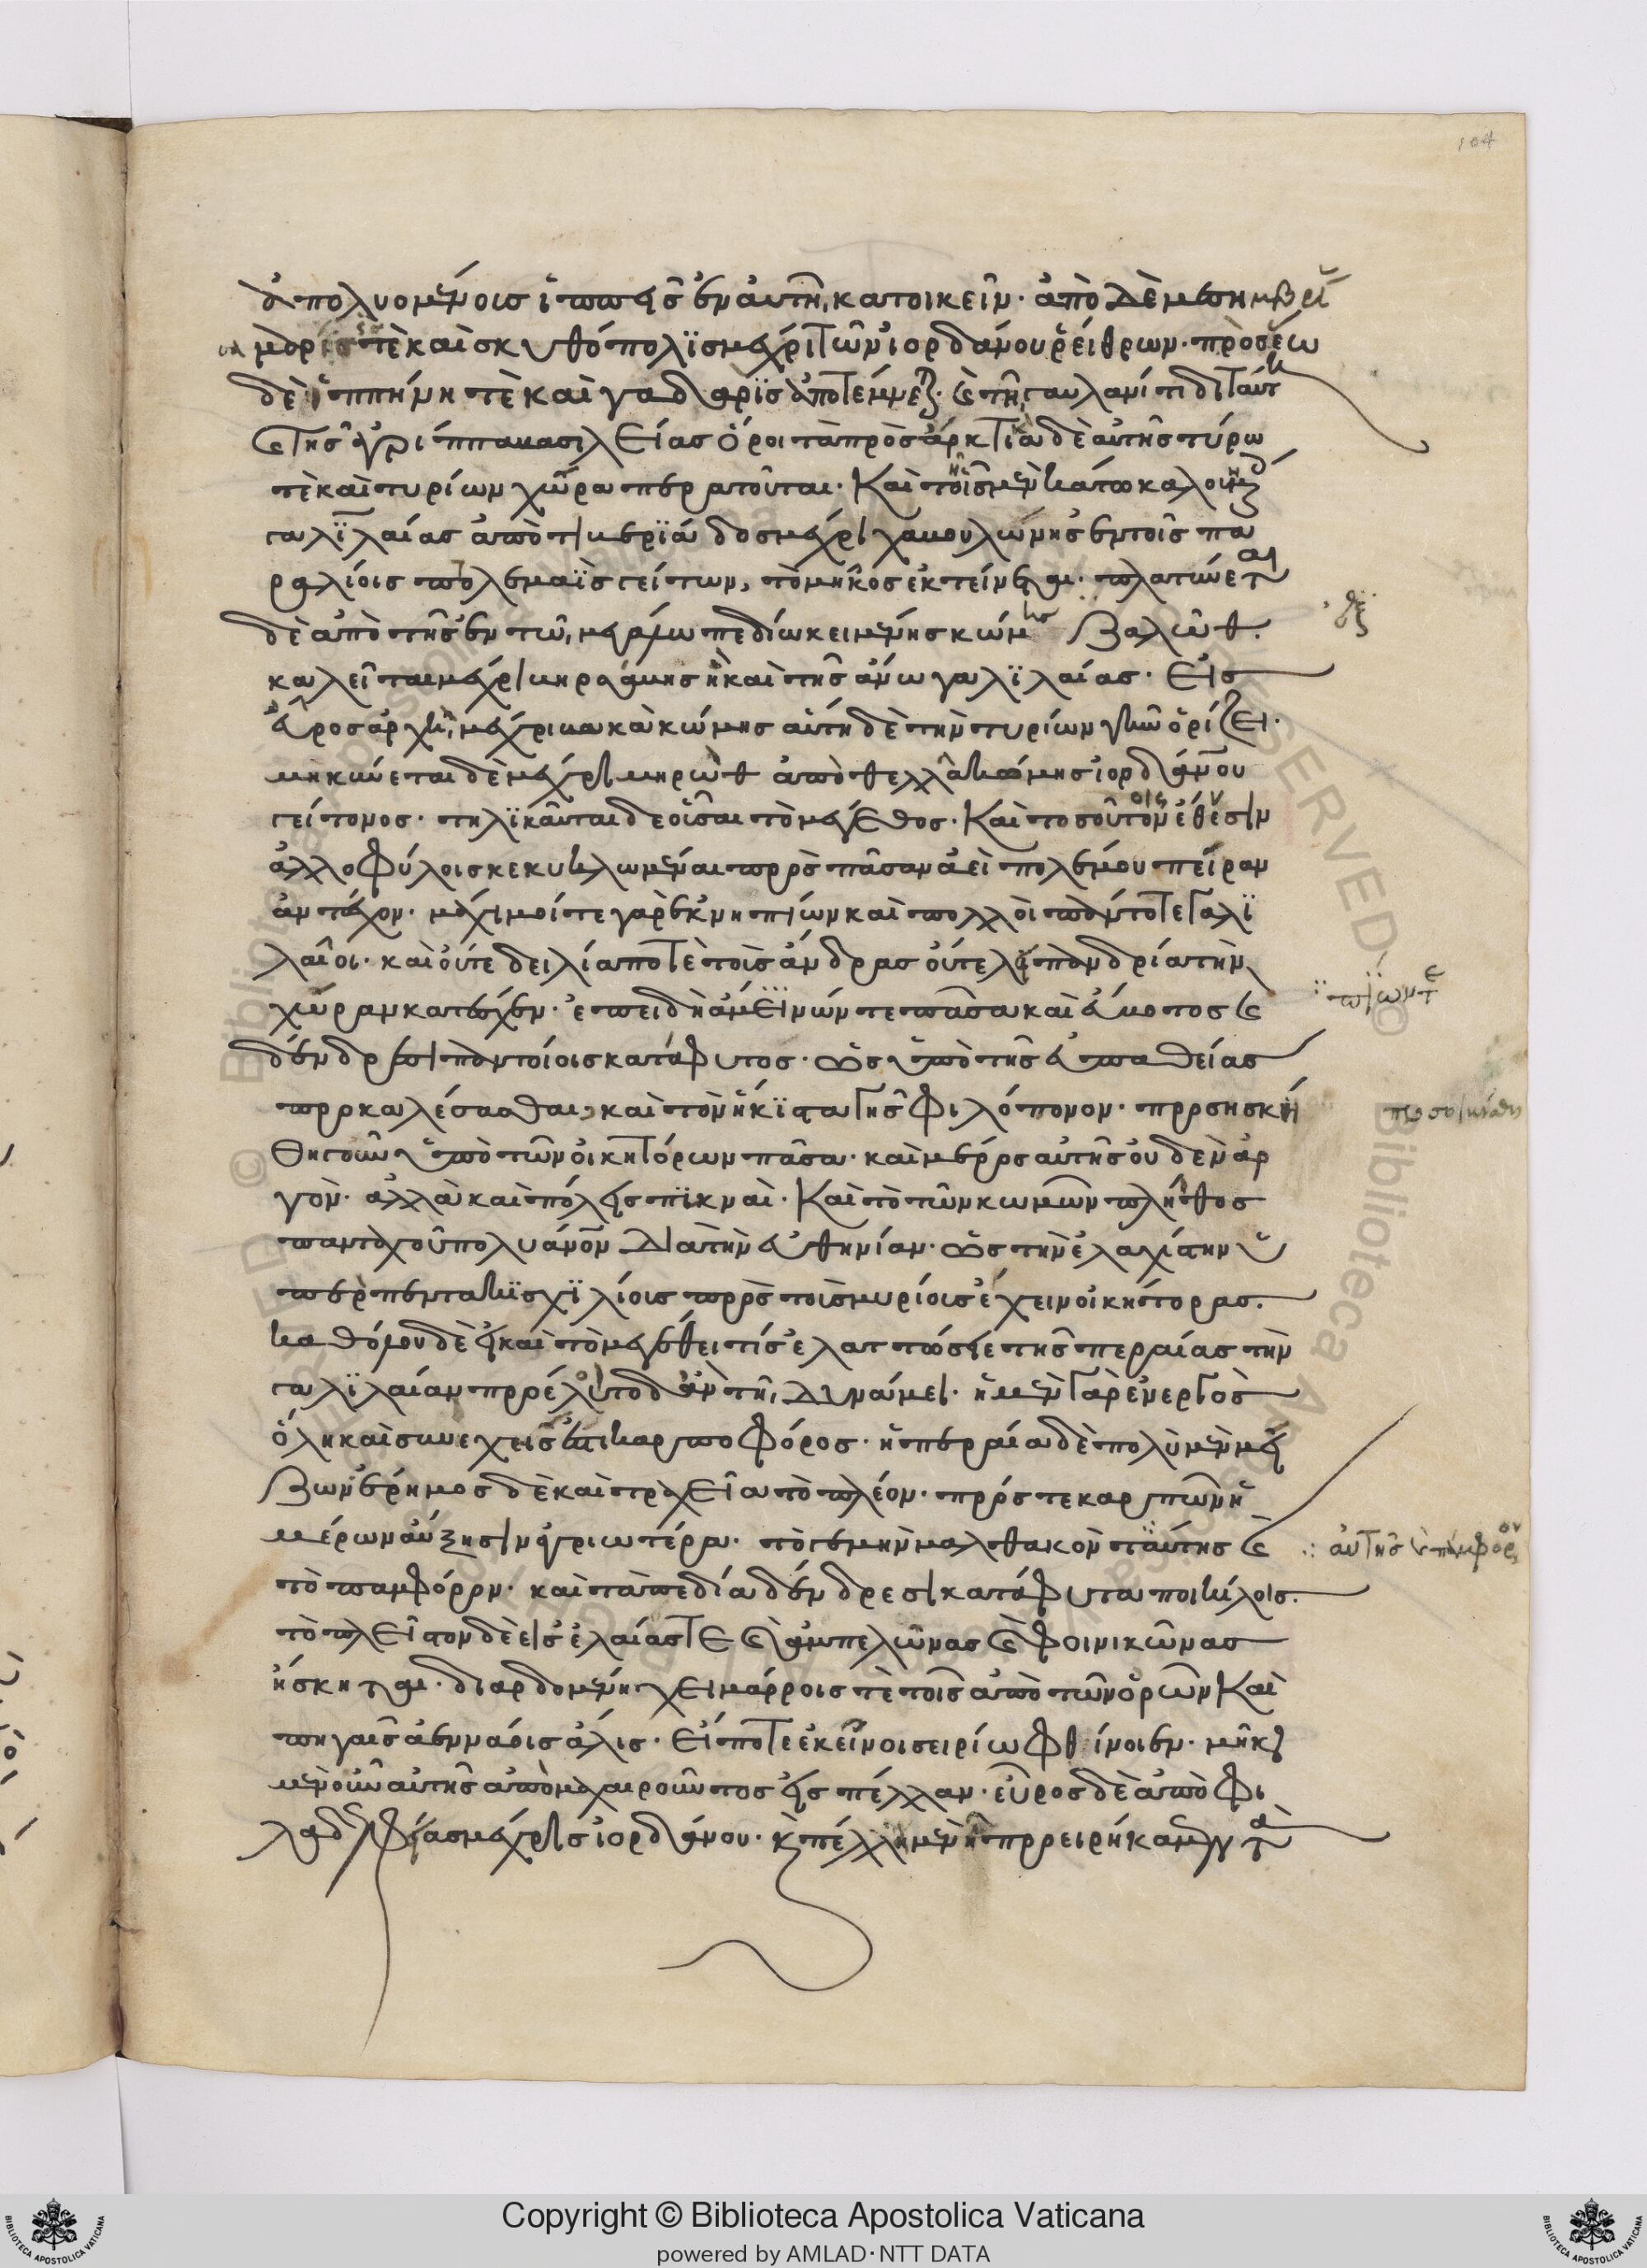 104
ἀπολυομένοις ἱππεῖς ἐν αὐτῆ κατοικεῖν· ἀπὸ δὲ μεσημβρί
τὲ καὶ σκυθόπολϊς μέχρι τῶν ἰορδάνου ῥείθρων· πρὸς ἕω
δὲ ἱππηνή τὲ καὶ γαδάροϊς ἀποτέμνετ· καὶ τῆ γαυλανίτιδι ταύτη
καὶ τῆς ἀγρίππα βασιλείας ὅροι τὰ πρὸς ἄρκτια δὲ αὐτῆς τύρω
τὲ καὶ τυρίων χώρα περατοῦται· Καὶ τῆς μὲν κάτω καλουμέν
γαλϊλαίας ἀπὸ τιβερϊάδος μέχρι χαβουλώνης ἐν τοῖς πα
ραλίοις πτολεμαῒς γείτων, τὸ μῆκος ἐκτείνεται· πλατύνεται
δὲ ἀπὸ τῆς ἐν τῶ μεγάλω πεδίω κειμένης κώμης
καλεῖται μέχρι βηρσάβης ἡ καὶ τῆς ἄνω γαλϊλαίας· Εἰς
εὖρος ἄρχεται μέχρι βακὰ κώμης αὕτη δὲ τὴν τυρίων γῆν ὁρίζει·
μηκύνεται δὲ μέχρι μηρὼθ ἀπὸ θελλᾶ κώμης ἰορδάνου
γείτονος· τηλϊκαῦται δ οὖσαι τὸ μέγεθος· Καὶ τοσούτοις ἔθνεσιν
ἀλλοφύλοις κεκυκλωμέναι πρὸς πᾶσαν ἀεὶ πολέμου πεῖραν
ἀντέχον· μάχιμοί τε γὰρ ἐκ νηπίων καὶ πολλοὶ πάντοτε γαλϊ
λαῖοι· καὶ οὔτε δειλία ποτὲ τοὺς ἄνδρας οὔτε λειπανδρία τὴν
χώραν κατέσχεν· ἐπειδὴ πᾶσα καὶ εὔβοτος καὶ
δένδρεσι παντοίοις κατάφυτος· ὡς ὑπὸ τῆς εὐπαθείας
προκαλέσασθαι, καὶ τὸν ἥκϊστα γῆς φιλόπονον· προσησκή
θη γοῦν ὑπὸ τῶν οἰκητόρων πᾶσα· καὶ μέρος αὐτῆς οὐδὲν ἀρ
γὸν· ἀλλὰ καὶ πόλεις πϊκναὶ· Καὶ τὸ τῶν κωμῶν πλῆθος
πανταχοῦ πολυάνον διὰ τὴν εὐθηνίαν· ὡς τὴν ἐλαχίστην ὑ
πὲρ πεντακϊσχϊλίοις πρὸς τοῖς μυρίοις ἔχειν οἰκήτορας·
καθόλου δὲ εἰ καὶ τὸ μεγέθει τίς ἐλαττώσειε τῆς περαίας τὴν
γαλϊλαίαν προέλοιτο δ ἂν τῆ δυνάμει· ἡ μὲν γὰρ ἐνεργὸς
ὅλη καὶ συνεχεῖς ἐστι καρποφόρος· ἡ περαία δὲ πολὺ μὲν μεί
ζων ἔρημος δὲ καὶ τραχεῖα τὸ πλέον· πρός τε καρπῶν ἡ
μέρων αὔξησιν ἀγριωτέρα· τό γε μὴν μαλθακὸν ταύτης καὶ
τὸ παμφόρον· καὶ τὰ πεδία δένδρεσι κατάφυτα ποικίλοις·
τὸ πλεῖστον δὲ εἰς ἐλαίας τε καὶ ἀμπελῶνας καὶ φοινικῶνας
ἤσκηται· διαρδομένη χειμάρροις τὲ τοῖς ἀπὸ τῶν ὀρῶν Καὶ
πηγαῖς ἀεννάοις ἅλις· Εἴποτε ἐκεῖνοι σειρίω φθίνοιεν· μῆκος
μὲν οὖν αὐτῆς ἀπὸ μαχαιροῦντος εἰς πέλλαν· εὖρος δὲ ἀπὸ φι
λαδελφείας μέχρις ἰορδάνου· καὶ πέλλη μὲν ἣν προειρήκαμεν τὰ
Copyright © Biblioteca Apostolica Vaticana
powered by AMLAD·NTT DATA